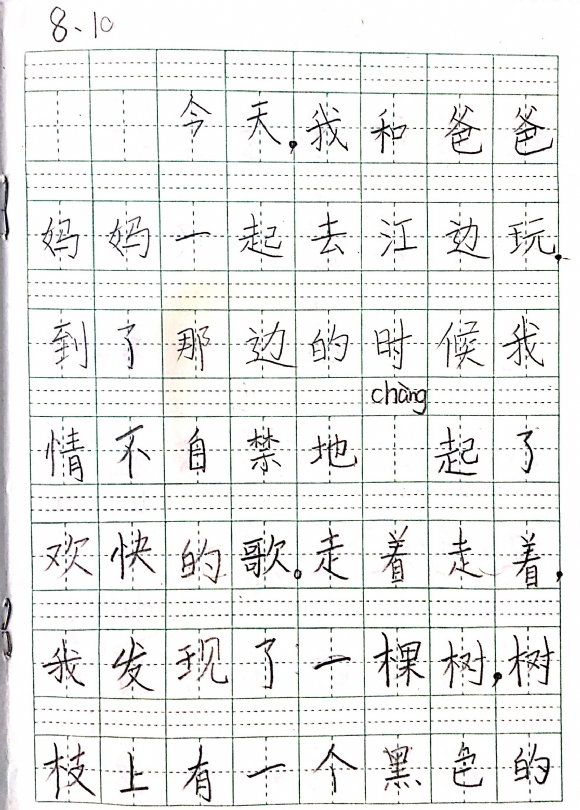 8.10
今天,我和爸爸
妈妈一起去江边玩.
到了那边的时候我
chàng
情不自禁地 起了
欢快的歌。走着走着,
我发现了一棵树,树
枝上有一个黑色的